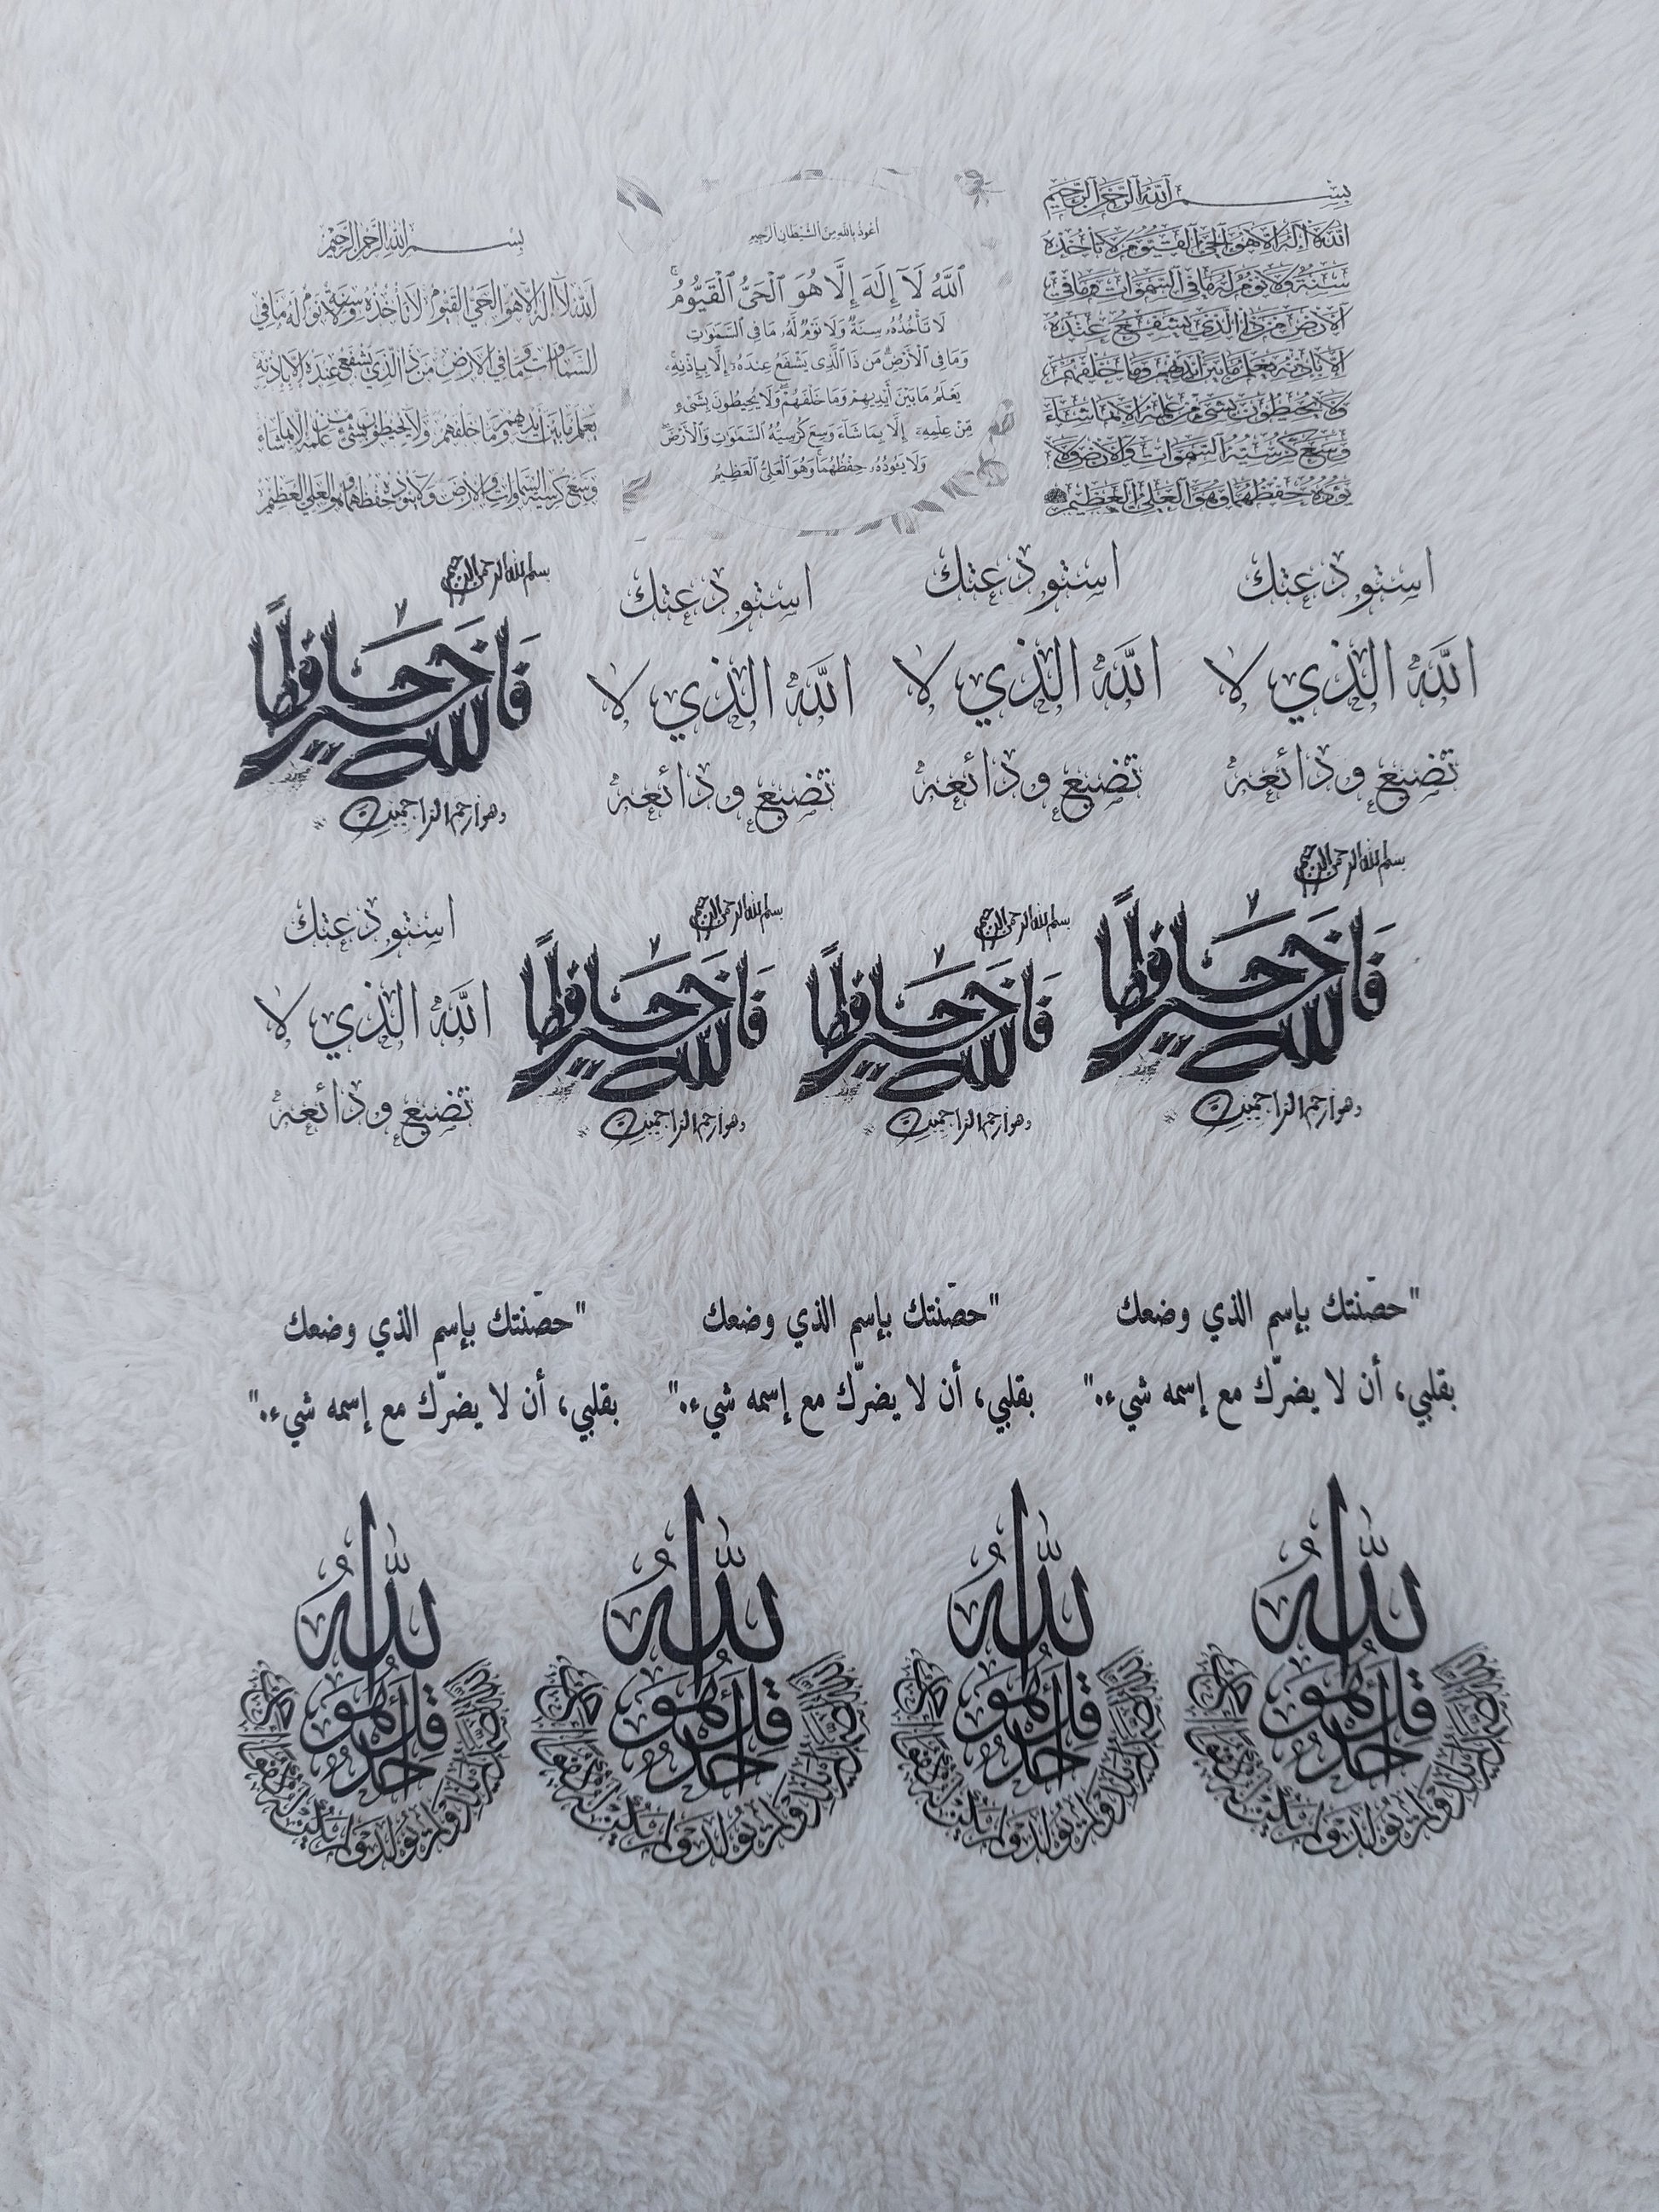 بسم الله الرحمن الرحيم
الله لا إله إلا هو الحي القيوم لا تأخذه
سنة ولا نوم له ما في السموات وما في
الأرض من ذا الذي يشفع عنده
إلا بإذنه يعلم ما بين أيديهم وما خلفهم
ولا يحيطون بشيء من علمه إلا بما شاء
وسع كرسيه السموات والأرض ولا
يؤده حفظهما وهو العلي العظيم
أعوذ بالله من الشيطان الرجيم
ٱللَّهُ لَآ إِلَٰهَ إِلَّا هُوَ ٱلْحَىُّ ٱلْقَيُّومُ ۚ
لَا تَأْخُذُهُۥ سِنَةٌ وَلَا نَوْمٌ لَّهُۥ مَا فِى السَّمَٰوَٰتِ
وَمَا فِى ٱلْأَرْضِ مَن ذَا ٱلَّذِى يَشْفَعُ عِندَهُۥٓ إِلَّا بِإِذْنِهِۦ ۚ
يَعْلَمُ مَا بَيْنَ أَيْدِيهِمْ وَمَا خَلْفَهُمْ وَلَا يُحِيطُونَ بِشَىْءٍ
مِّنْ عِلْمِهِۦٓ إِلَّا بِمَا شَآءَ وَسِعَ كُرْسِيُّهُ السَّمَٰوَٰتِ وَٱلْأَرْضَ
وَلَا يَـُٔودُهُۥ حِفْظُهُمَا وَهُوَ ٱلْعَلِىُّ ٱلْعَظِيمُ
بسم الله الرحمن الرحيم
الله لا إله إلا هو الحي القيوم لا تأخذه سنة ولا نوم له ما في
السماوات وما في الأرض من ذا الذي يشفع عنده إلا بإذنه
يعلم ما بين أيديهم وما خلفهم ولا يحيطون بشيء من علمه إلا بما شاء
وسع كرسيه السماوات والأرض ولا يؤده حفظهما وهو العلي العظيم
استودعتك
الله الذي لا
تضيع ودائعه
استودعتك
الله الذي لا
تضيع ودائعه
استودعتك
الله الذي لا
تضيع ودائعه
بسم الله الرحمن الرحيم
فالله خير حافظاً
وهو أرحم الراحمين
بسم الله الرحمن الرحيم
فالله خير حافظاً
وهو أرحم الراحمين
بسم الله الرحمن الرحيم
فالله خير حافظاً
وهو أرحم الراحمين
بسم الله الرحمن الرحيم
فالله خير حافظاً
وهو أرحم الراحمين
استودعتك
الله الذي لا
تضيع ودائعه
"حصّنتك بإسم الذي وضعك
بقلبي، أن لا يضرّك مع إسمه شيء."
"حصّنتك بإسم الذي وضعك
بقلبي، أن لا يضرّك مع إسمه شيء."
"حصّنتك بإسم الذي وضعك
بقلبي، أن لا يضرّك مع إسمه شيء."
قل هو الله أحد
الله الصمد لم يلد ولم يولد ولم يكن له كفوا أحد
قل هو الله أحد
الله الصمد لم يلد ولم يولد ولم يكن له كفوا أحد
قل هو الله أحد
الله الصمد لم يلد ولم يولد ولم يكن له كفوا أحد
قل هو الله أحد
الله الصمد لم يلد ولم يولد ولم يكن له كفوا أحد